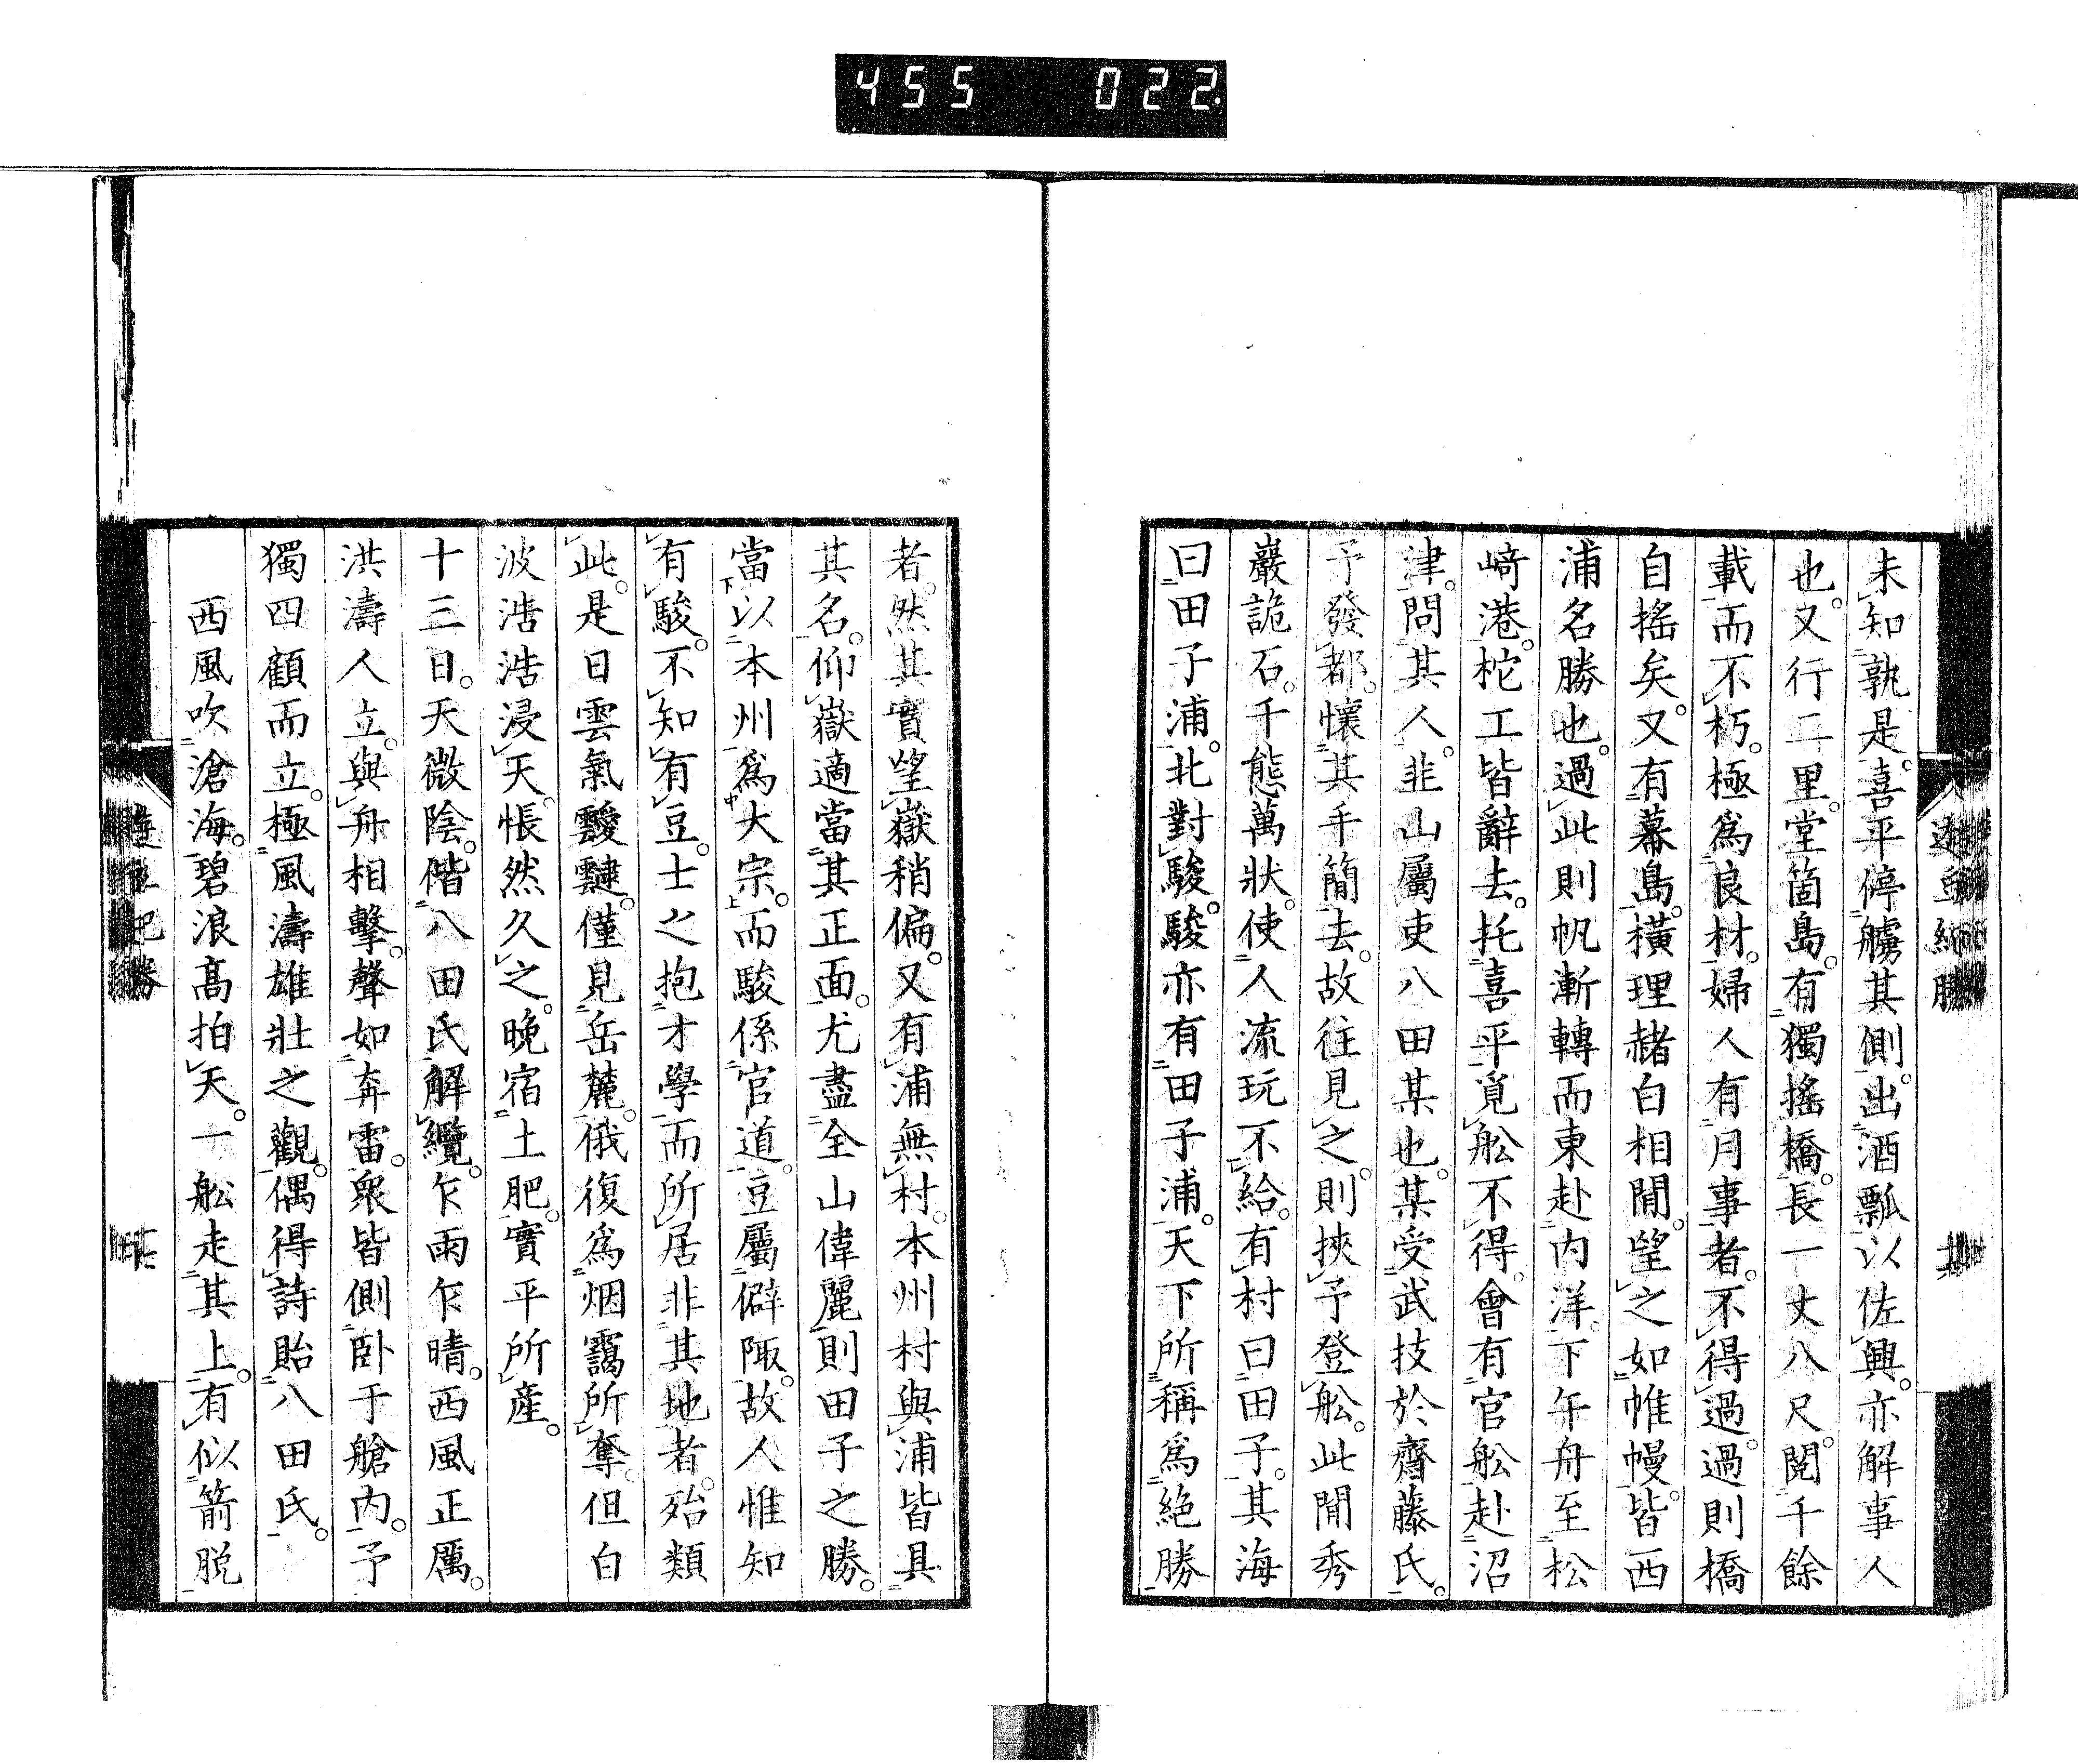 455 022
未知孰是。喜平停艣其側。出酒瓢以佐興。亦解事人
也。又行二里。堂箇島。有獨搖橋。長一丈八尺。閲千餘
載而不朽。極爲良材。婦人有月事者。不得過。過則橋
自搖矣。又有幕島。横理赭白相閒。望之如帷幔。皆西
浦名勝也。過此則帆漸轉而東赴内洋。下午舟至松
﨑港。柁工皆辭去。托喜平覓舩不得。會有官舩赴沼
津。問其人。韭山屬吏八田某也。某受武技於齋藤氏。
予發都。懷其手簡去。故往見之。則挾予登舩。此閒秀
巖詭石。千態萬狀。使人流玩不給。有村曰田子。其海
曰田子浦。北對駿。駿亦有田子浦。天下所稱爲絶勝
者。然其實望嶽稍偏。又有浦無村。本州村與浦皆具
其名。仰嶽適當其正面。尤盡全山偉麗。則田子之勝。
當以本州爲大宗。而駿係官道。豆屬僻陬。故人惟知
有駿。不知有豆。士之抱才學而所居非其地者。殆類
此。是日雲氣靉靆。僅見岳麓。俄復爲烟靄所奪。但白
波浩浩浸天。悵然久之。晩宿土肥。實平所産。
十三日。天微陰。偕八田氏解纜。乍雨乍晴。西風正厲。
洪濤人立。與舟相擊。聲如奔雷。衆皆側卧于艙内。予
獨四顧而立。極風濤雄壯之觀。偶得詩貽八田氏。
西風吹滄海。碧浪髙拍天。一舩走其上。有似箭脱